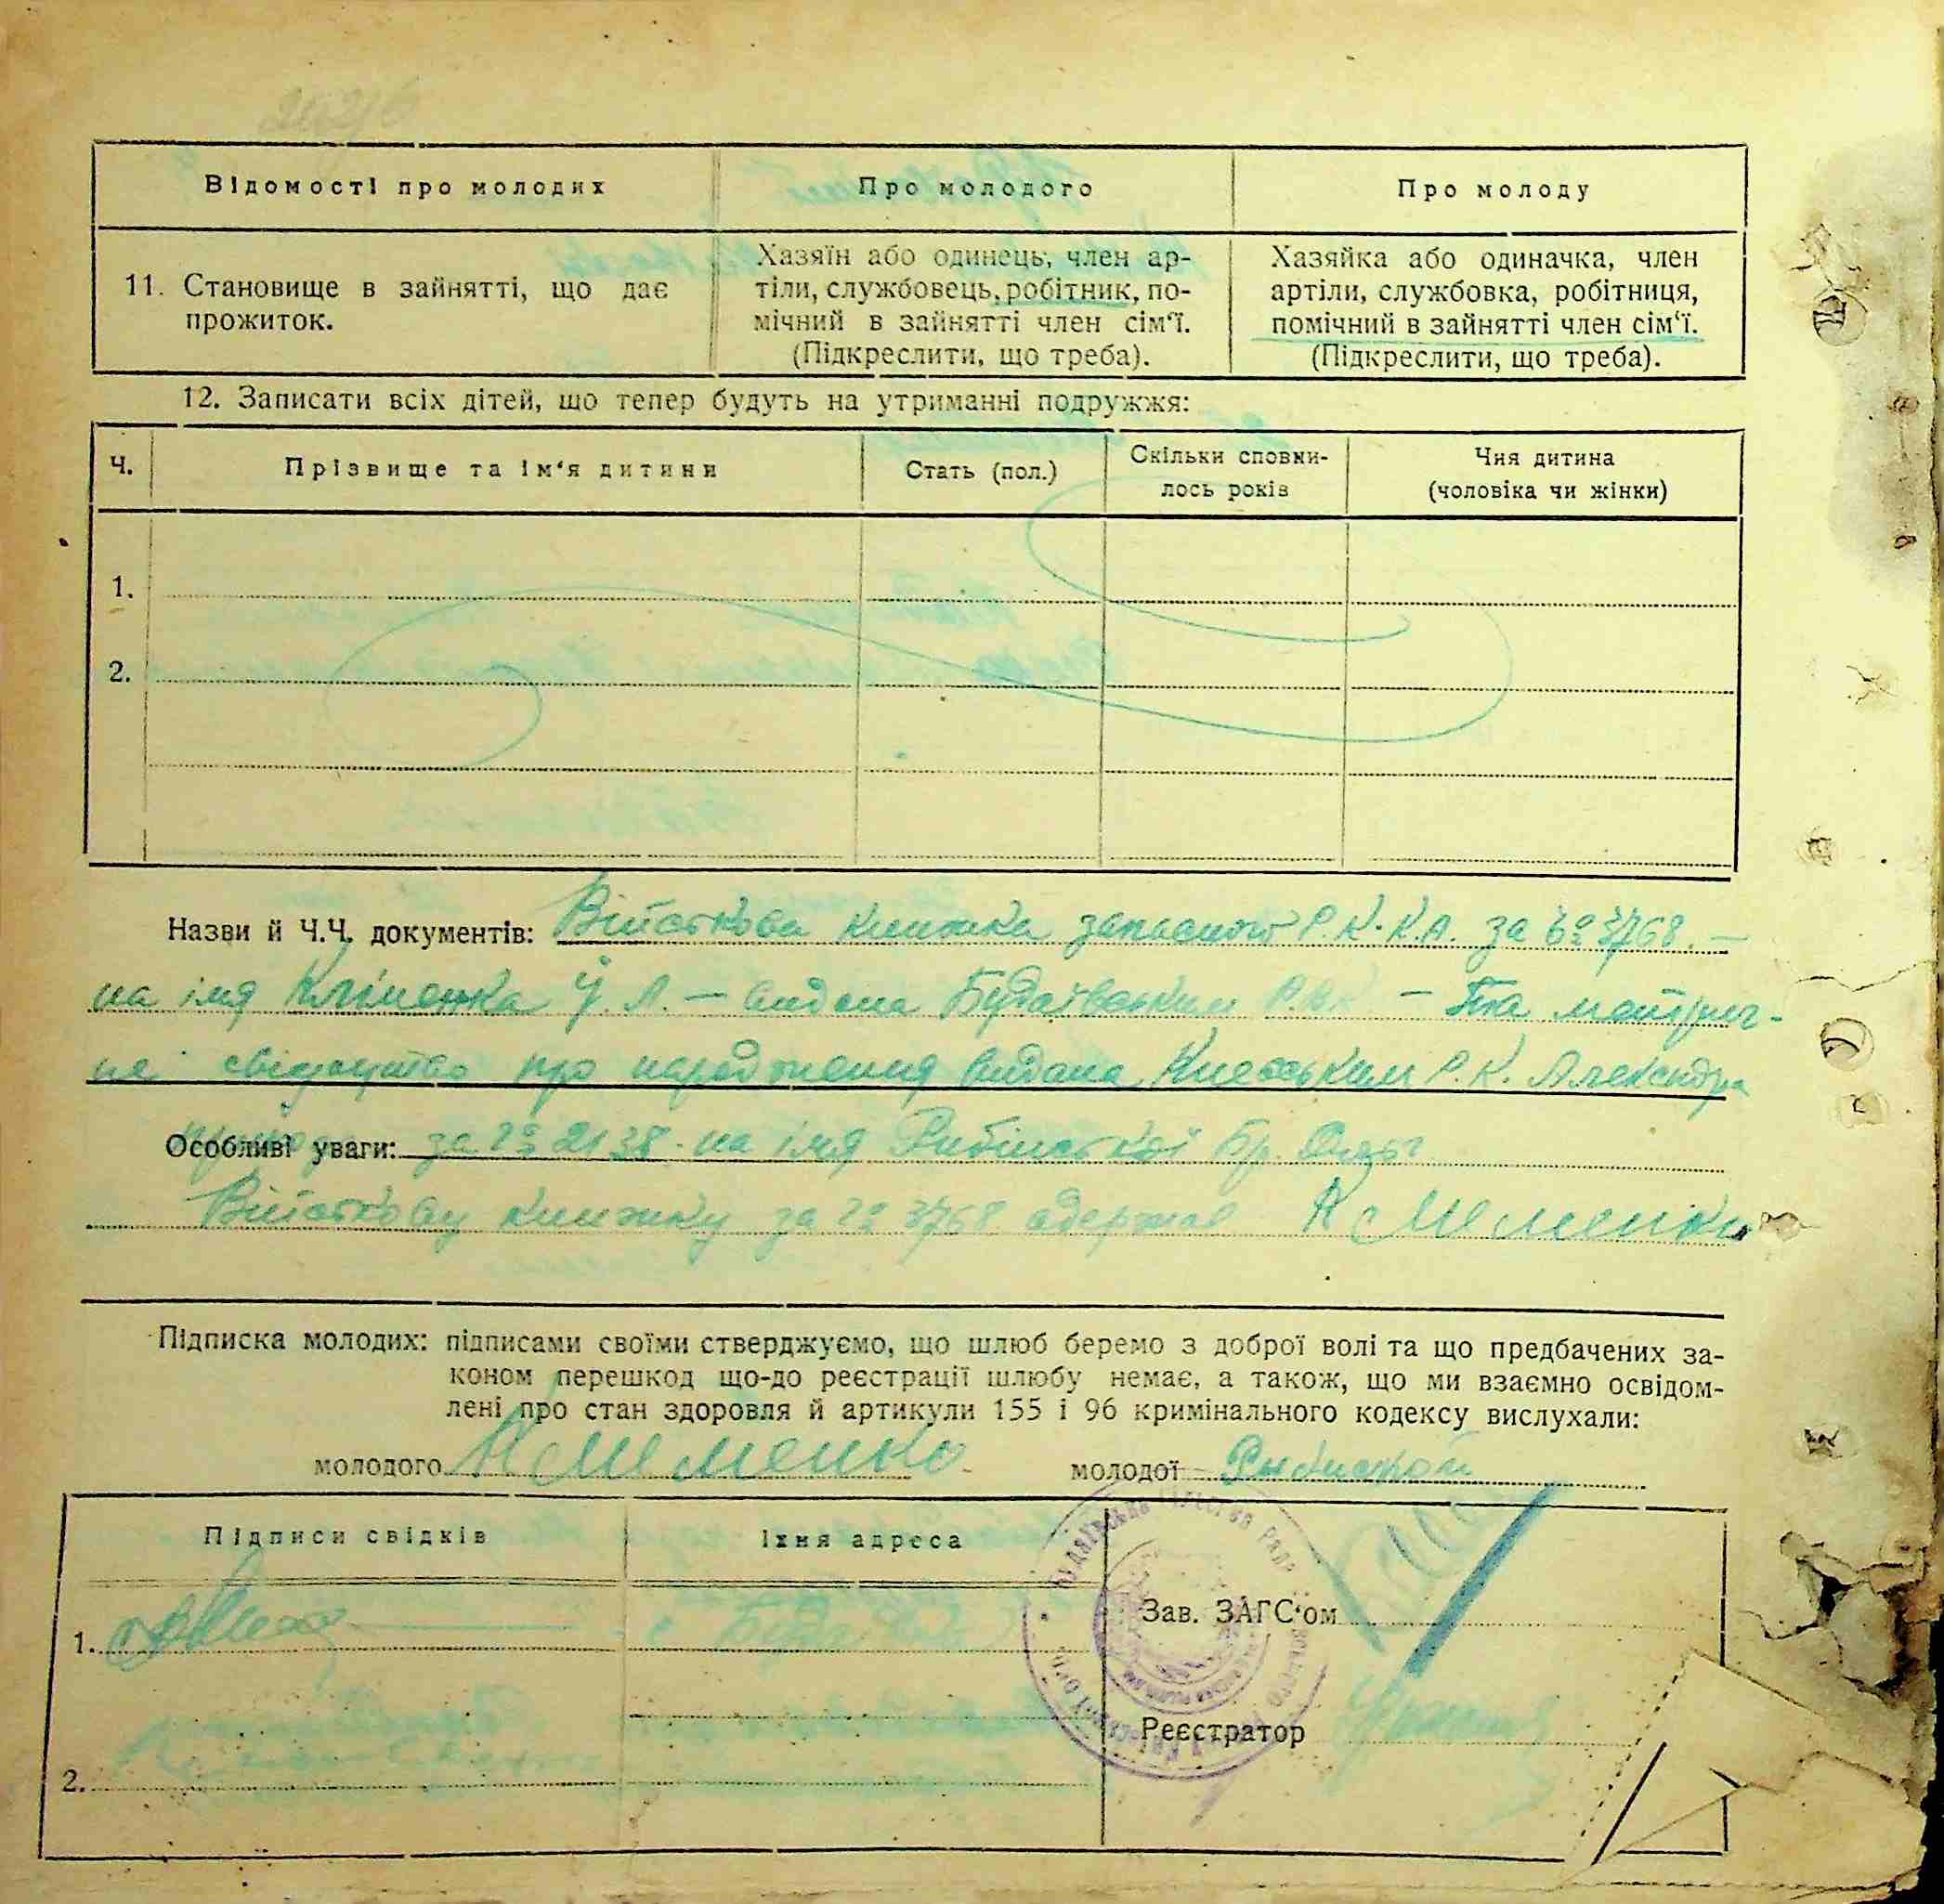 Відомості про молодих
Про молодого
Про молоду
11. Становище в зайнятті, що дає
прожиток.
Хазяїн або одинець, член ар-
тіли, службовець, робітник, по-
мічний в зайнятті член сім'ї.
(Підкреслити, що треба).
Хазяйка або одиначка, член
артіли, службовка, робітниця,
помічний в зайнятті член сім'ї.
(Підкреслити, що треба).
12. Записати всіх дітей, що тепер будуть на утриманні подружжя:
Ч.
Прізвище та ім'я дитини
Стать (пол.)
Скільки сповни-
лось років
Чия дитина
(чоловіка чи жінки)
1.
2.
Назви й Ч.Ч. документів: Військова книжка запасного Р.К.К.А. за № 3768. —
на імя Кліменка Й. Л. — видана Будаївським — Та метрич-
не свідоцтво про народження видана Киевським Р.К. Александр
Особливі уваги: за № 2138 на імя Рибінської
Військову книжку за № 3768 одержав Клеменко
Підписка молодих: підписами своїми стверджуємо, що шлюб беремо з доброї волі та що предбачених за-
коном перешкод що-до реєстрації шлюбу немає, а також, що ми взаємно освідом-
лені про стан здоровля й артикули 155 і 96 кримінального кодексу вислухали:
молодого Клеменко молодої
Підписи свідків
Їхня адреса
1.
2.
Зав. ЗАГС'ом
Реєстратор